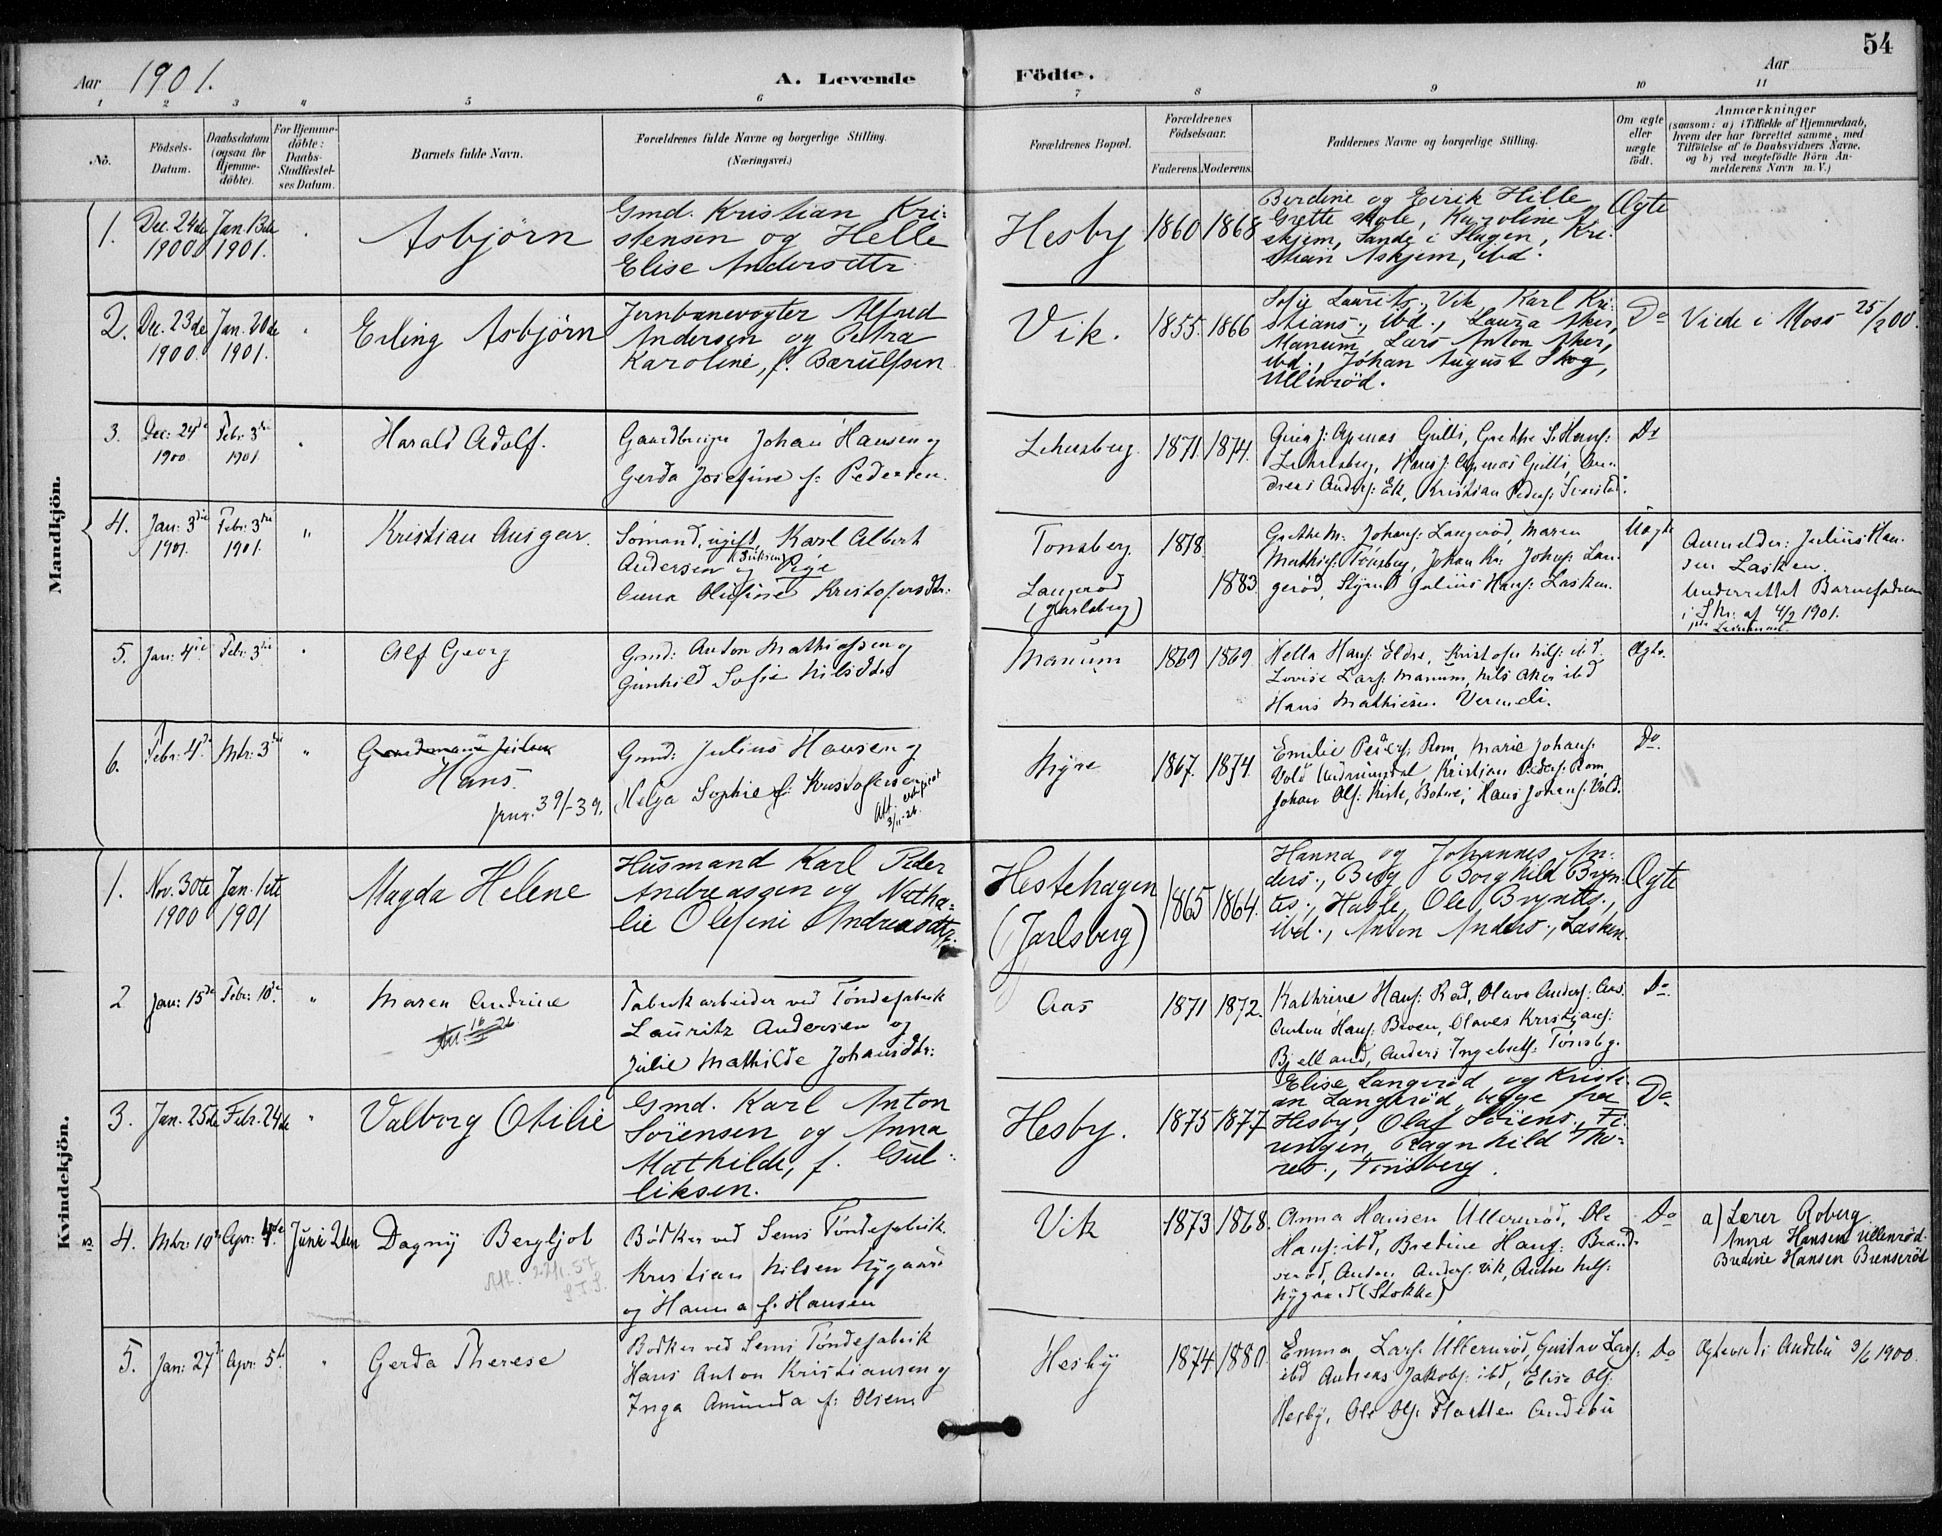 54
Aar 1901.
A. Levende Födte.
Aar
1 2 3 4 5 6 7 8 9 10 11
No.
Födsels-Datum.
Daabsdatum (ogsaa for Hjemme-döbte).
For Hjemme-döbte: Daabs-Stadfæstel-ses Datum.
Barnets fulde Navn.
Forældrenes fulde Navne og borgerlige Stilling.
(Næringsvei.)
Forældrenes Bopæl.
Forældrenes Födselsaar.
Faderens. Moderens.
Faddernes Navne og borgerlige Stilling.
Om ægte eller uægte födt.
Anmærkninger
(saasom: a) i Tilfælde af Hjemmedaab,
hvem der har forrettet samme, med
Tilföielse af to Daabsvidners Navne,
og b) ved uægtefödte Börn An-
melderens Navn m. V.)
Mandkjön.
1. Dec. 24de 1900. Jan. 13de 1901. Asbjørn
Gmd. Kristian Kri-
stensen og Helle
Elise Andersdtr
Hesby 1860 1868
Berdine og Eirik Hille
Grette skole, Karoline A
skjem, Sande i Slagen, Kri-
stian Askjem, ibd.
Ægte
2. Dec. 23de 1900. Jan. 20de 1901. Erling Asbjörn
Jernbanevogter Alfred
Andersen og Petra
Karoline, f. Bærulfsen
Vik. 1855. 1866
Sofie Laurits., Vik, Karl Kri-
stians., ibd., Laura Aker,
Manum, Lars Anton Aker,
ibd., Johan August Skog,
Ullenrød.
Do
Viede i Moss 25/2 00.
3. Dec: 24de 1900. Febr: 3die 1901 Harald Adolf.
Gaardbruger Johan Hansen og
Gerda Josefine f: Pedersen.
1871. 1874.
Do
4. Jan: 3die 1901. Febr: 3die 1901. Kristian Ansgar.
Sømand, ugift, Karl Albert
Andersen og Pige
Anna Olufine Kristofersdtr:
Tønsberg. 1878.
Langerød 1883
(Jarlsberg)
Uægte
Anmelder: Julius Han-
sen Lasken.
Underrettet Barnefaderen
i Skr. af 4/2 1901.
5. Jan: 4die Febr: 3die Alf Georg
Gmd: Anton Mathiassen og
Gunhild Sofie Nilsdtr
Manum 1869 1869
Hella Hans: Eldre, Kristofer Nils: ibd.
Lovise Lars: Manum, Nils Aker ibd
Hans Mathiesen
Ægte.
6. Febr: 4de Mtr: 3die "
Hans.
39/-39.
Gmd: Julius Hansen og
Helga Sophie f: Kristofersen
Att. 3/11-26.
Myre 1867. 1874
Emilie Peders: Rom, Marie Johans:
Kristian Peders: Rom,
Hans Johans: Vold.
Do.
Kvindekjön.
1. Nov. 30te 1900 Jan. 1ste 1901 Magda Helene
Husmand Karl Peder
Andreassen og Natha-
lie Olefine Andreasdtr.
Hestehagen
(Jarlsberg)
1865 1864.
Hanna og Johannes An-
ders., Berg, Borghild Bryn-
tes., Hable, Ole Bryntes.,
ibd., Anton Anders., Lasken.
Ægte
2 Jan: 15de Febr: 10de " Maren Andrine
Fabrikarbeider ved Tøndefabrik
Lauritz Andersen og
Julie Mathilde Johansdtr:
Aas 1871 1872.
Kathrine Hans: Rød, Olava Anders: Aas.
Anton Hans: Bruen, Olaves Kristians:
Bjelland, Anders Ingebrets: Tønsbg.
Do.
3. Jan. 25de Febr. 24de " Valborg Otilie
Gmd. Karl Anton
Sörensen og Anna
Mathilde, f. Gul-
liksen.
Hesby. 1875 1877
Elise Langerød og Kristi-
an Langerød, begge fra
Hesby, Olaf Sörens.,
Ragnhild Tho-
res., Tønsberg.
Do
4. Mtr: 10de Apr: 4de Juni 2den Dagny Bergljot
Bødker ved Sems Tøndefabrik
Kristian Nilsen Nygaard
og Hanna f. Hansen
Vik 1873 1868.
Anna Hansen Ullernrød, Ole
Hans: ibd, Bredine Hans:
Anton Anders: Vik, Anton Nils:
Nygaard (Stokke)
Do
a) Lærer Roberg
Anna Hansen Ullenrød.
Bredine Hansen Brenserød
5. Jan: 27de Apr: 5te Gerda Therese
Bødker ved Sems Tøndefabrik
Hans Anton Kristiansen og
Inga Amunda f: Olsen
Hesby 1874 1880
Emma Lars: Ullernrød, Gustav Lars:
ibd Andreas Jakobs: ibd, Elise Ols:
Hesby, Ole Ols: Flaatten Andebu
Do
Ægteviet i Andebu 3/6 1900.